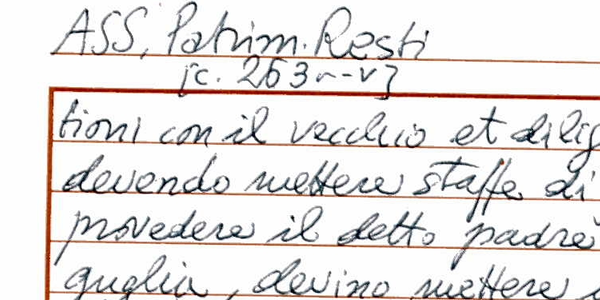 ASS, Patrim. Resti
[c. 263r-v]
tioni con il vecchio et dilig
devendo mettere staffe di
provedere il detto padre
guglia, devino mettere